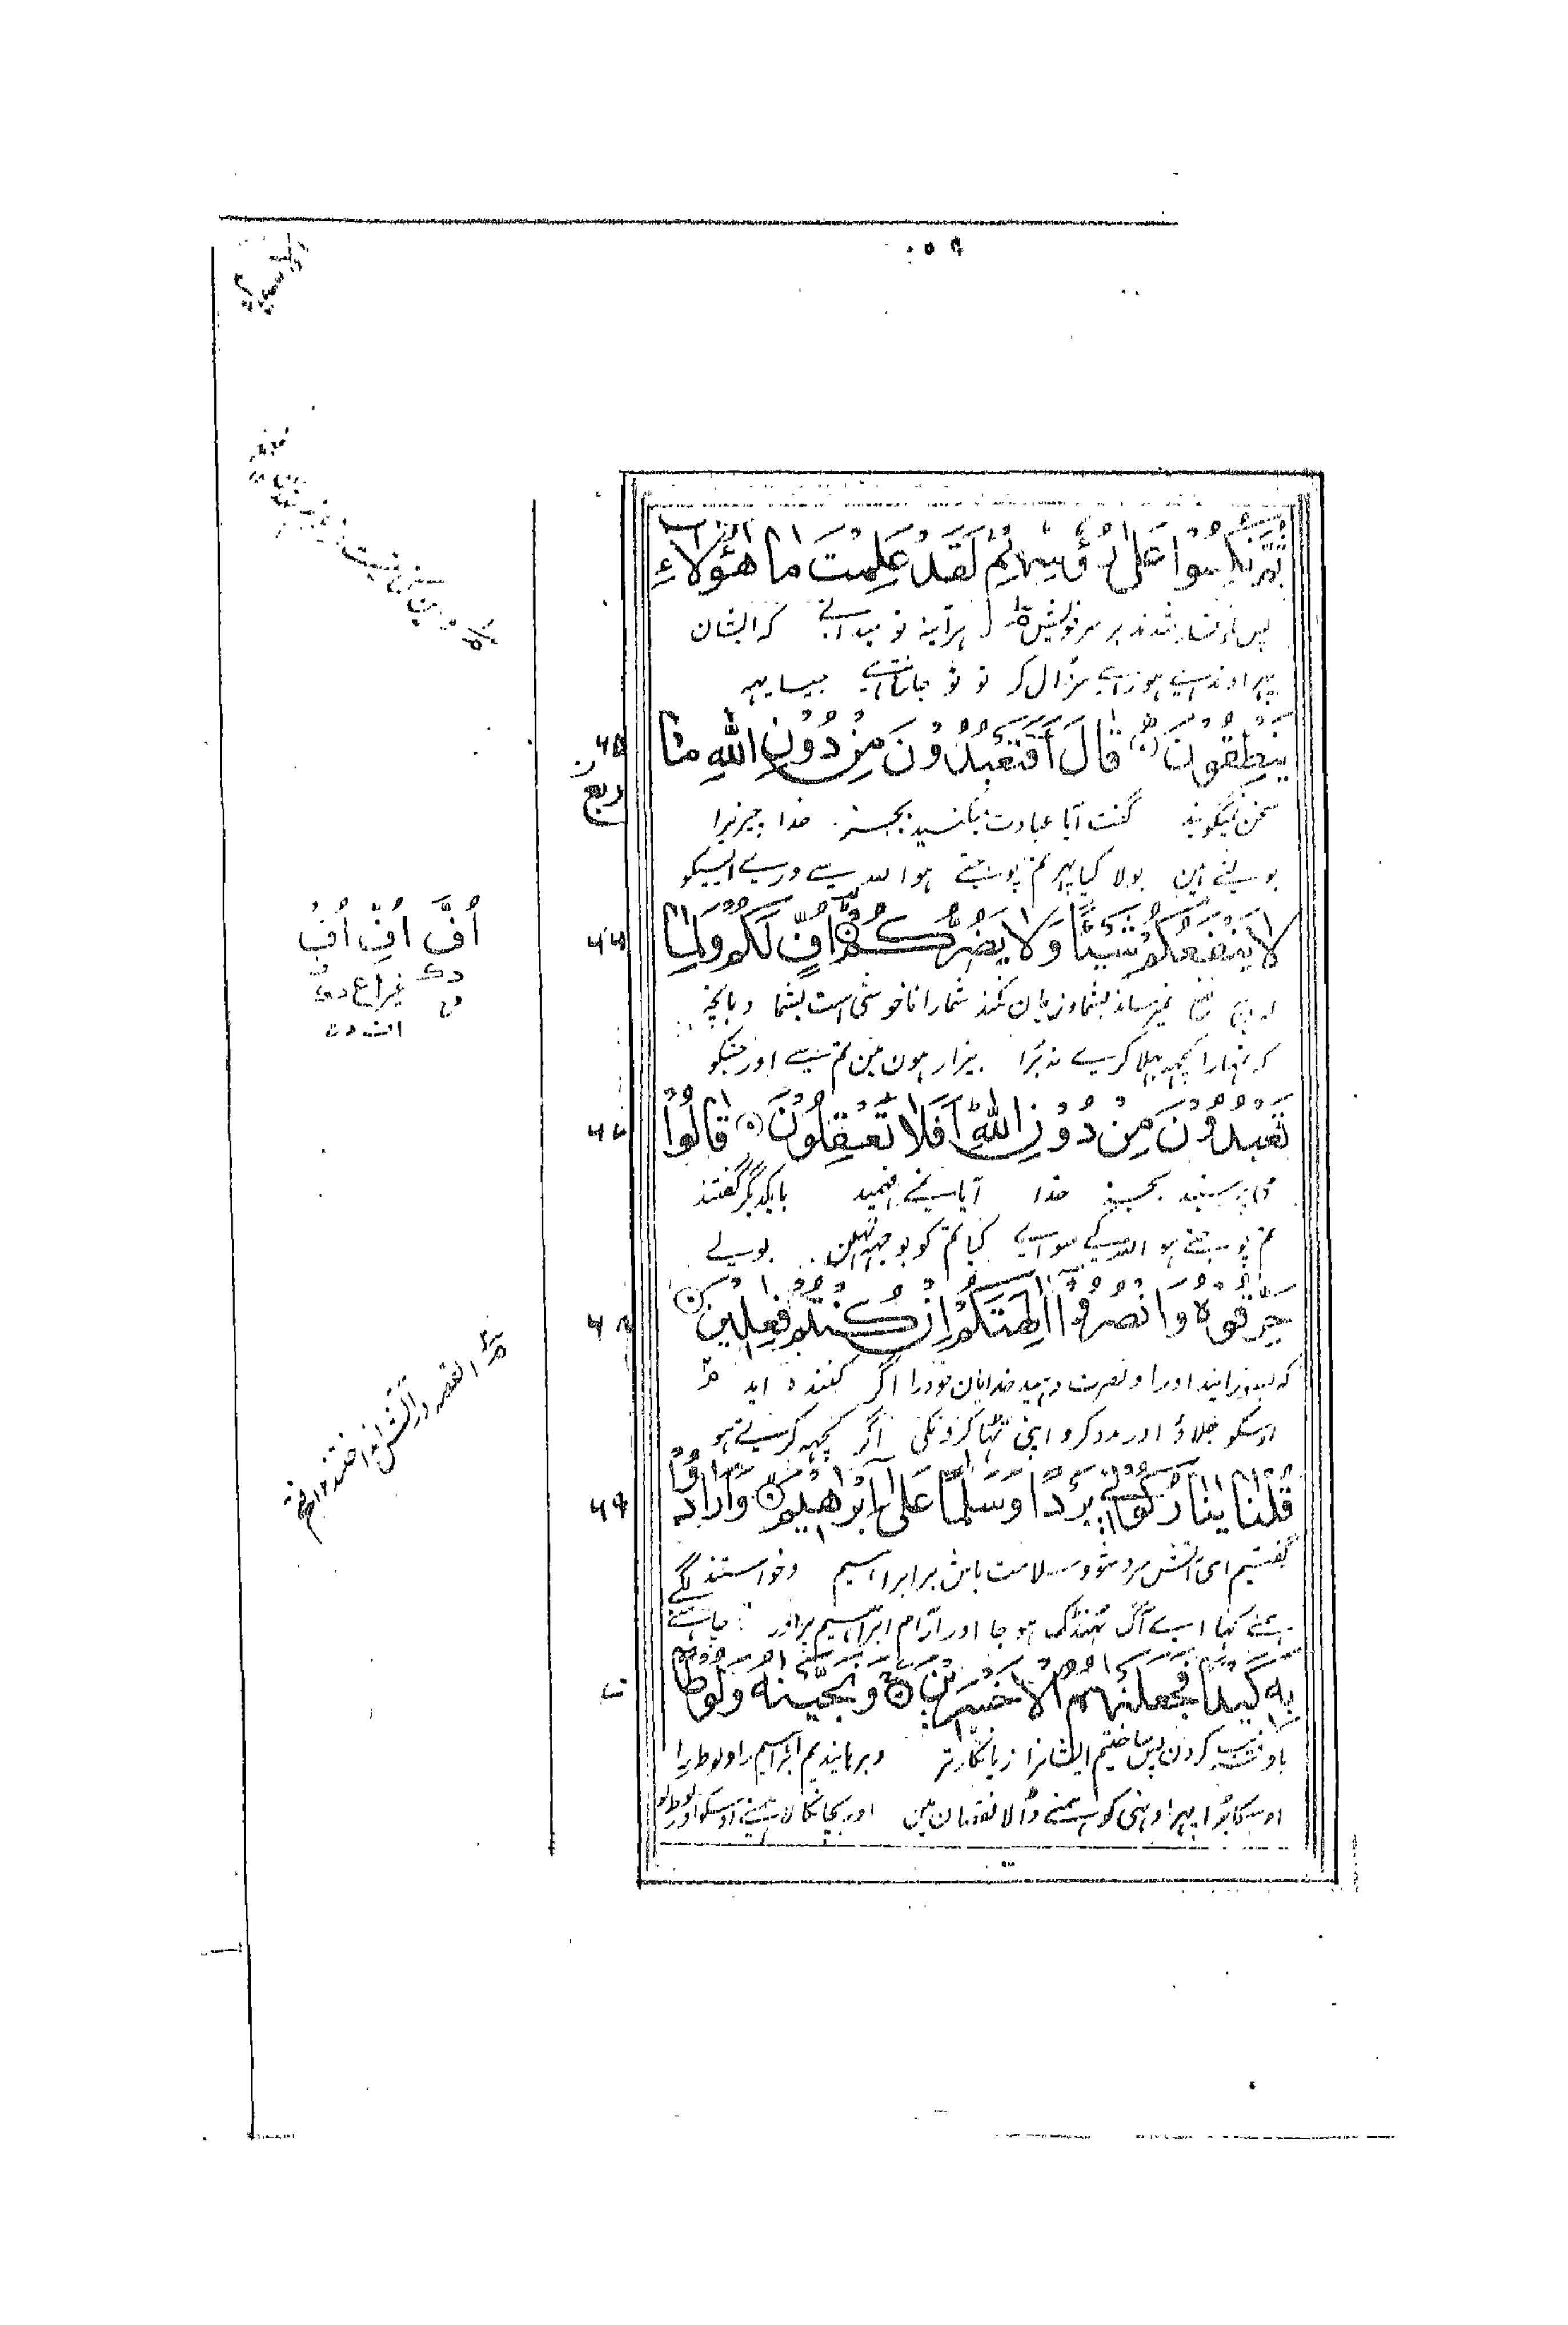 ثُمَّ نُكِسُوْا عَلٰى رُءُوْسِهِمْ لَقَدْ عَلِمْتَ مَا هٰٓؤُلَاءِ
نگونسار شدند بر سر خویش ہرآئینہ تو میدانی کہ ایشان
پہر اوندہے ہو رہے سر ڈال کر تو تو جانتا ہے جیسا یہہ
يَنْطِقُوْنَ قَالَ اَفَتَعْبُدُوْنَ مِنْ دُوْنِ اللّٰهِ مَا
۶۵
ربع
سخن نمیگویند گفت آیا عبادت میکنید بجز خدا چیزیرا
بولتے ہین بولا کیا پہر تم پوجتے ہو اللہ سے ورے ایسیکو
لَا يَنْفَعُكُمْ شَيْئًا وَّلَا يَضُرُّكُمْ اُفٍّ لَّكُمْ وَلِمَا
۶۶
اُفَّ اُفِّ اُفُ
نفع نمیرساند بشما و زیان نکند شمارا ناخوشی است بشما و بآنچہ
کہ تمہارا کچہہ بہلا کرے نہ برا بیزار ہون مین تم سے اور جنکو
تَعْبُدُوْنَ مِنْ دُوْنِ اللّٰهِ اَفَلَا تَعْقِلُوْنَ قَالُوْا
۶۷
می پرستید بجز خدا آیا نمی فہمید بایکدیگر گفتند
تم پوجتے ہو اللہ کے سواے کیا تم کو بوجہہ نہین بولے
حَرِّقُوْهُ وَانْصُرُوْٓا اٰلِهَتَكُمْ اِنْ كُنْتُمْ فٰعِلِيْنَ
۶۸
کہ بسوزانید اورا و نصرت دہید خدایان خودرا اگر کنندہ اید
اوسکو جلاؤ اور مدد کرو اپنی ٹہاکرونکی اگر کچہہ کرتے ہو
القصہ در آتش انداختند
قُلْنَا يٰنَارُ كُوْنِيْ بَرْدًا وَّسَلٰمًا عَلٰٓى اِبْرٰهِيْمَ وَاَرَادُوْا
۶۹
گفتیم ای آتش سرد شو و سلامت باش بر ابراہیم و خواستند
ہمنے کہا اے آگ ٹہنڈک ہو جا اور آرام ابراہیم پر اور چاہنے لگے
بِهٖ كَيْدًا فَجَعَلْنٰهُمُ الْاَخْسَرِيْنَ وَنَجَّيْنٰهُ وَلُوْطًا
کردن پس ساختیم ایشانرا زیانکارتر و برہانیدیم ابراہیم را و لوط را
اوسکا برا پہر اونہی کو ہمنے ڈالا نقصان مین اور بچا نکالا ہمنے اوسکو اور لوط کو